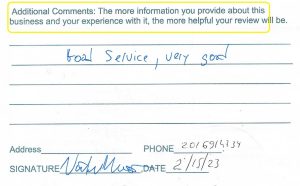 Additional Comments: The more information you provide about this
business and your experience with it, the more helpful your review will be.
Good Service, very good
Address PHONE 2016914334
SIGNATURE DATE 2/15/23